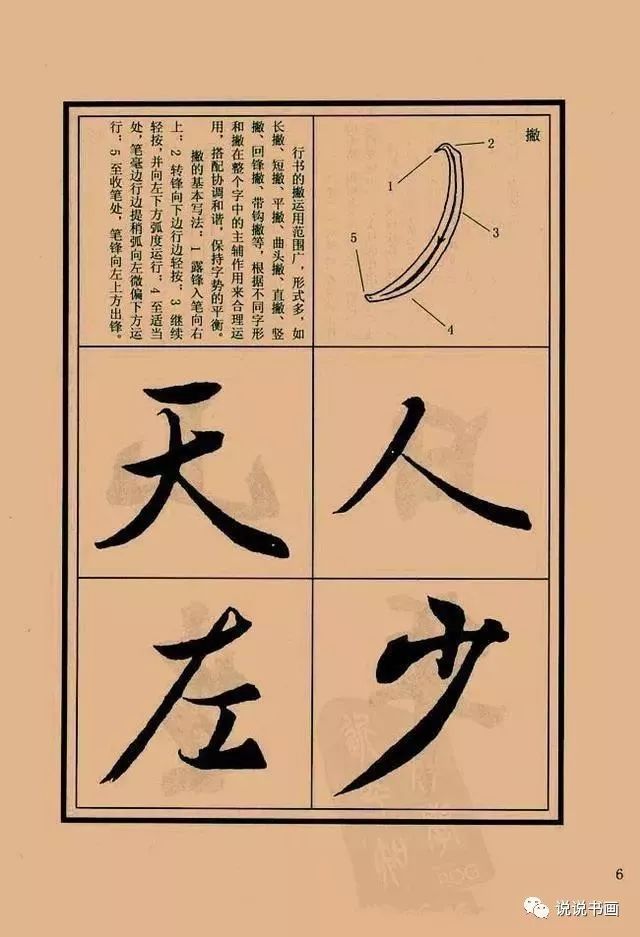 撇
2
1
3
5
4
行书的撇运用范围广，形式多，如
长撇、短撇、平撇、曲头撇、直撇、竖
撇、回锋撇、带钩撇等，根据不同字形
和撇在整个字中的主辅作用来合理运
用，搭配协调和谐，保持字势的平衡。
撇的基本写法：1 露锋入笔向右
上；2 转锋向下边行边轻按；3 继续
轻按，并向左下方弧度运行；4 至适当
处，笔毫边行边提稍弧向左微偏下方运
行；5 至收笔处，笔锋向左上方出锋。
人
天
少
左
6
说说书画